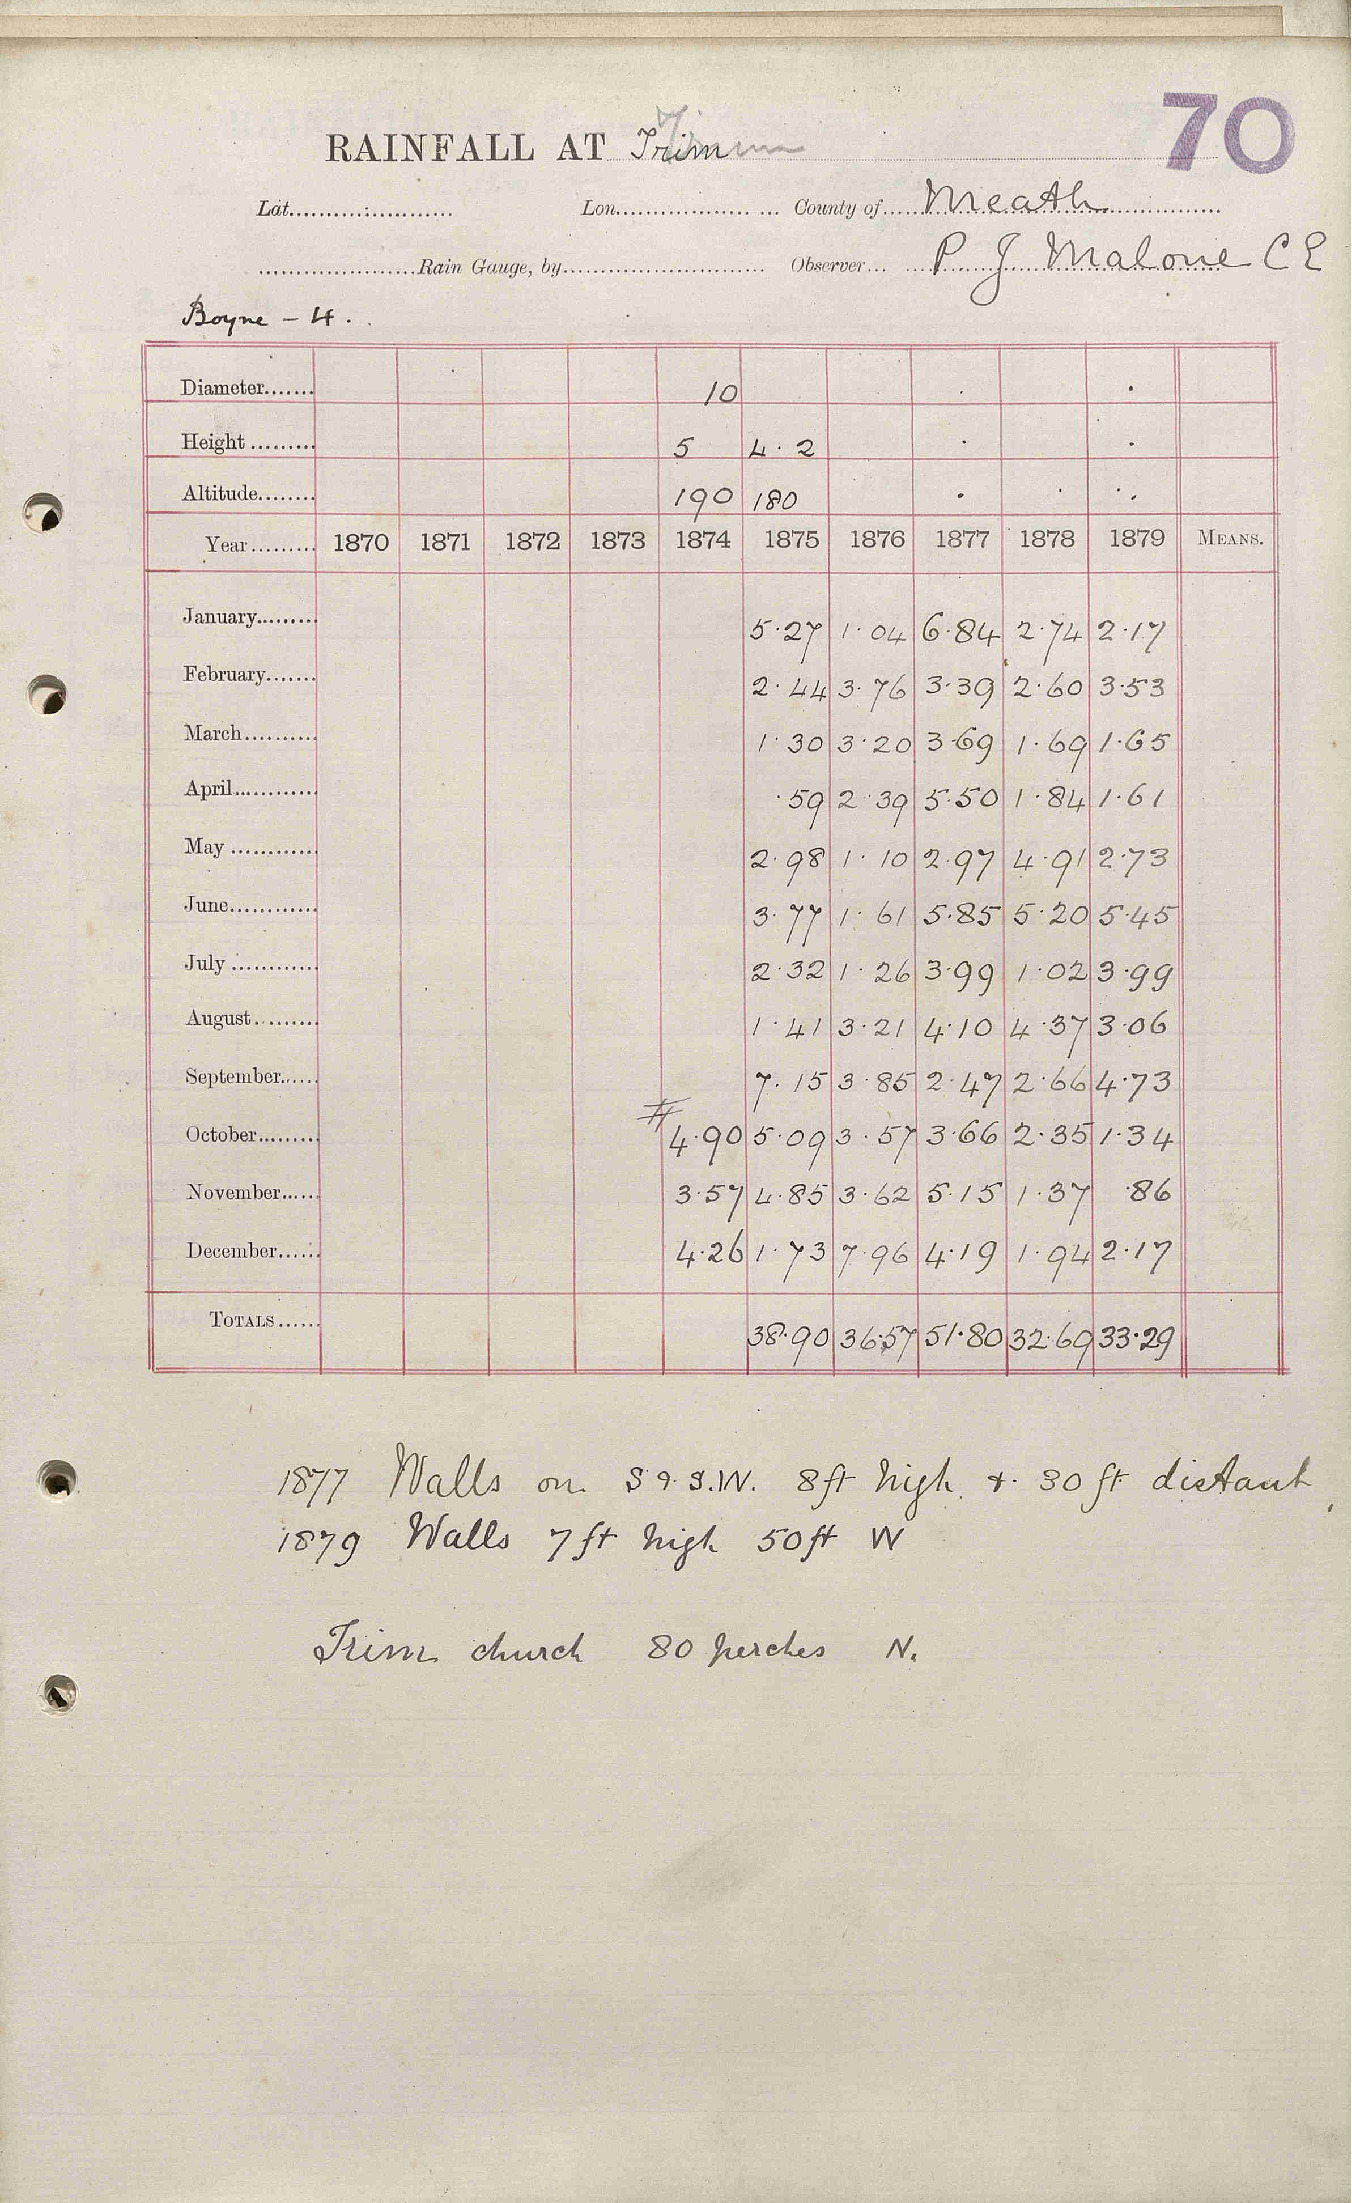 70
RAINFALL AT Trim
Lat....................... Lon.................. ... County of......Meath
......................Rain Gauge, by........................... Observer... P J Malone C E
Boyne - 4.
Diameter....... 10
Height ......... 5 4.2
Altitude........ 190 180
Year......... 1870 1871 1872 1873 1874 1875 1876 1877 1878 1879 MEANS.
January......... 5.27 1.04 6.84 2.74 2.17
February....... 2.44 3.76 3.39 2.60 3.53
March.......... 1.30 3.20 3.69 1.69 1.65
April............. .59 2.39 5.50 1.84 1.61
May ............ 2.98 1.10 2.97 4.91 2.73
June............ 3.77 1.61 5.85 5.20 5.45
July ............ 2.32 1.26 3.99 1.02 3.99
August......... 1.41 3.21 4.10 4.37 3.06
September...... 7.15 3.85 2.47 2.66 4.73
October......... 4.90 5.09 3.57 3.66 2.35 1.34
November...... 3.57 4.85 3.62 5.15 1.37 .86
December...... 4.26 1.73 7.96 4.19 1.94 2.17
TOTALS...... 38.90 36.57 51.80 32.69 33.29
1877 Walls on S & S.W. 8ft high & 30 ft distant
1879 Walls 7 ft high 50ft W
Trim church 80 perches N.